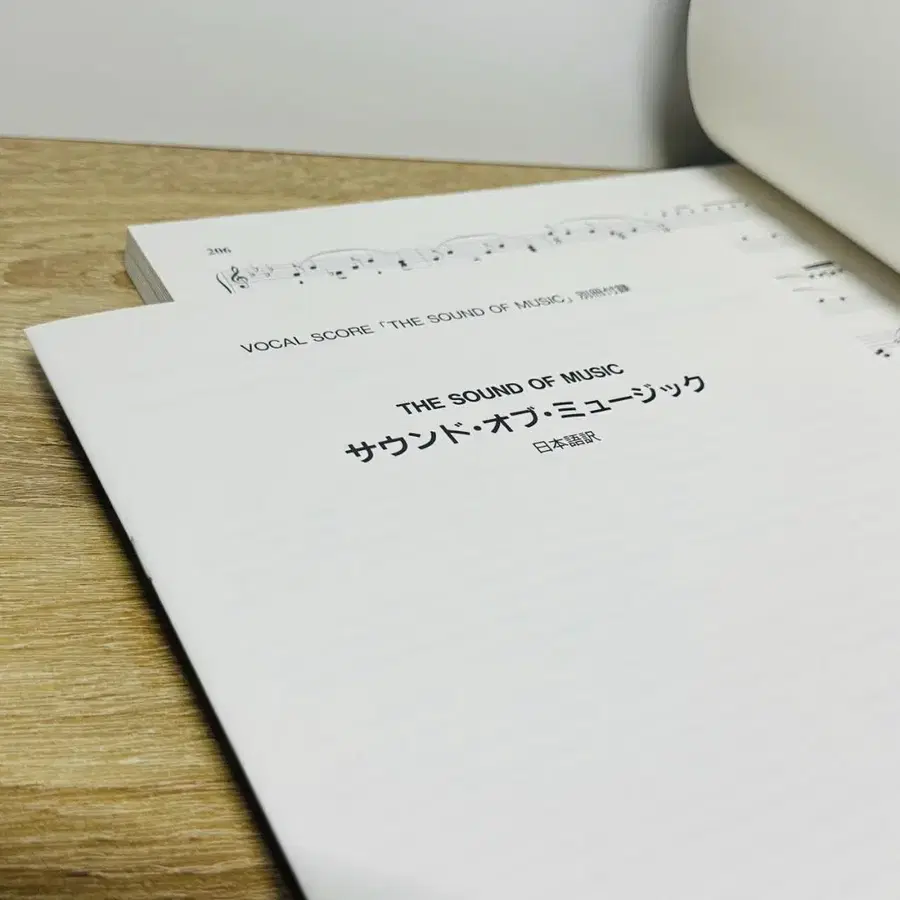 206
VOCAL SCORE「THE SOUND OF MUSIC」別冊付録
THE SOUND OF MUSIC
サウンド・オブ・ミュージック
日本語訳